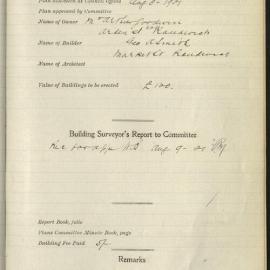 Plan submitted at Council typed Aug 8. 1901
Plan approved by Committee
Name of Owner Mr Arthur Goodwin
Arden St Randwick
Name of Builder Geo A Smith
Market St Randwick
Name of Architect
Value of Buildings to be erected £100.
Building Surveyor's Report to Committee
Rec for app Aug 9-01
Report Book, folio
Plans Committee Minute Book, page
Building Fee Paid 5/-
Remarks